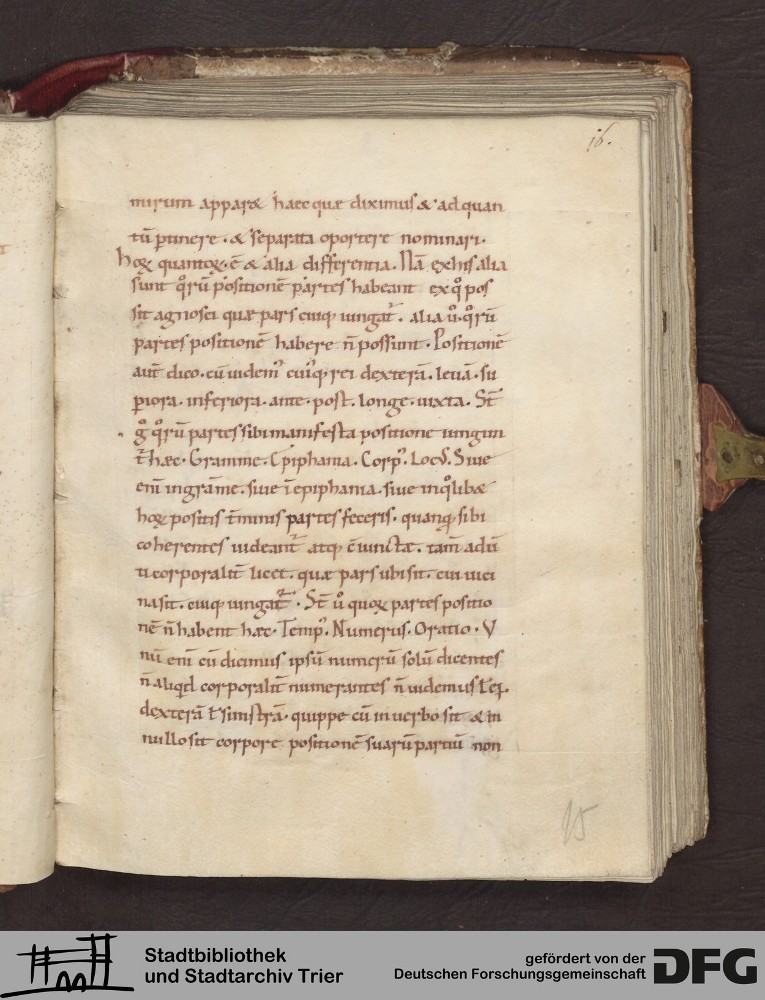 16.
mirum appar& haec quæ diximus & ad quan
tū ꝑtinere · & separata oportere nominari ·
hoꝝ quantoꝝ · ē & alia differentia . Nā ex his alia
sunt qͦrū positionē partes habeant ex qͦ pos
sit agnosci quæ pars cuiq; iungat᷑ . alia ů · qͦrū
partes positionē habere n̄ possunt · Positionē
aut̄ dico . cū uidem᷒ cui᷒q; rei dexterā . leuā . su
ꝑiora . inferiora . ante · post . longe · iuxta . St̄
gͦ qͦrū partes sibi manifesta positione iungun
t᷑ hæc · Gramme . Epiphania . Corp᷒ . Loc᷒ . Siue
eni̅ in gra̅me . siue ī epiphania . siue in qͦlib&
hoꝝ positis t̄minis partes feceris · quanq̄ sibi
coherentes uideant᷑ atq; c̄iunctæ . tam̄ adū
ti corporalit̄ licet . quæ pars ubi sit . cui uici
na sit . cuiq; iungat᷑ · St̄ ů quoꝝ partes positio
nē n̄ habent hæc · Temp᷒ . Numerus . Oratio · V
nū eni̅ cū dicimus ipsū numerū solū dicentes
n̄ aliqͥd corporalit̄ numerantes n̄ uidemus
dexterā ł sinistrā · quippe cū in uerbo sit & in
nullo sit corpore positionē suarū partiū non
15
Stadtbibliothek
und Stadtarchiv Trier
gefördert von der
Deutschen Forschungsgemeinschaft
DFG